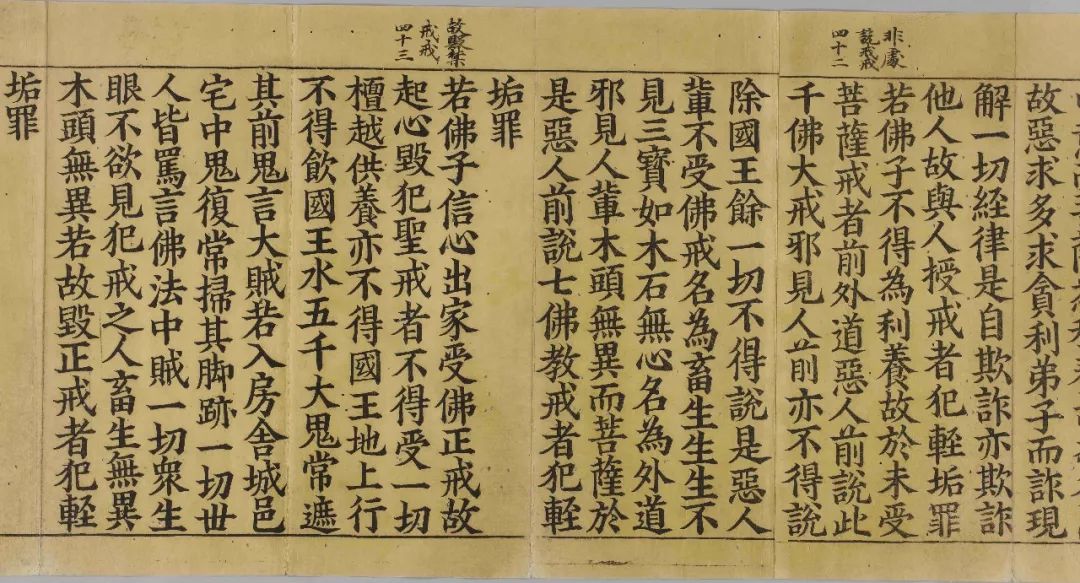 故惡求多求貪利弟子而詐現
解一切経律是自欺詐亦欺詐
他人故與人授戒者犯輕垢罪
非處
說戒戒
四十二
若佛子不得為利養故於未受
菩薩戒者前外道惡人前說此
千佛大戒邪見人前亦不得說
除國王餘一切不得說是惡人
軰不受佛戒名為畜生生生不
見三寳如木石無心名為外道
邪見人軰木頭無異而菩薩於
是惡人前說七佛教戒者犯輕
垢罪
故毀禁
戒戒
四十三
若佛子信心出家受佛正戒故
起心毀犯聖戒者不得受一切
檀越供養亦不得國王地上行
不得飲國王水五千大鬼常遮
其前鬼言大賊若入房舍城邑
宅中鬼復常掃其脚跡一切世
人皆罵言佛法中賊一切衆生
眼不欲見犯戒之人畜生無異
木頭無異若故毀正戒者犯輕
垢罪